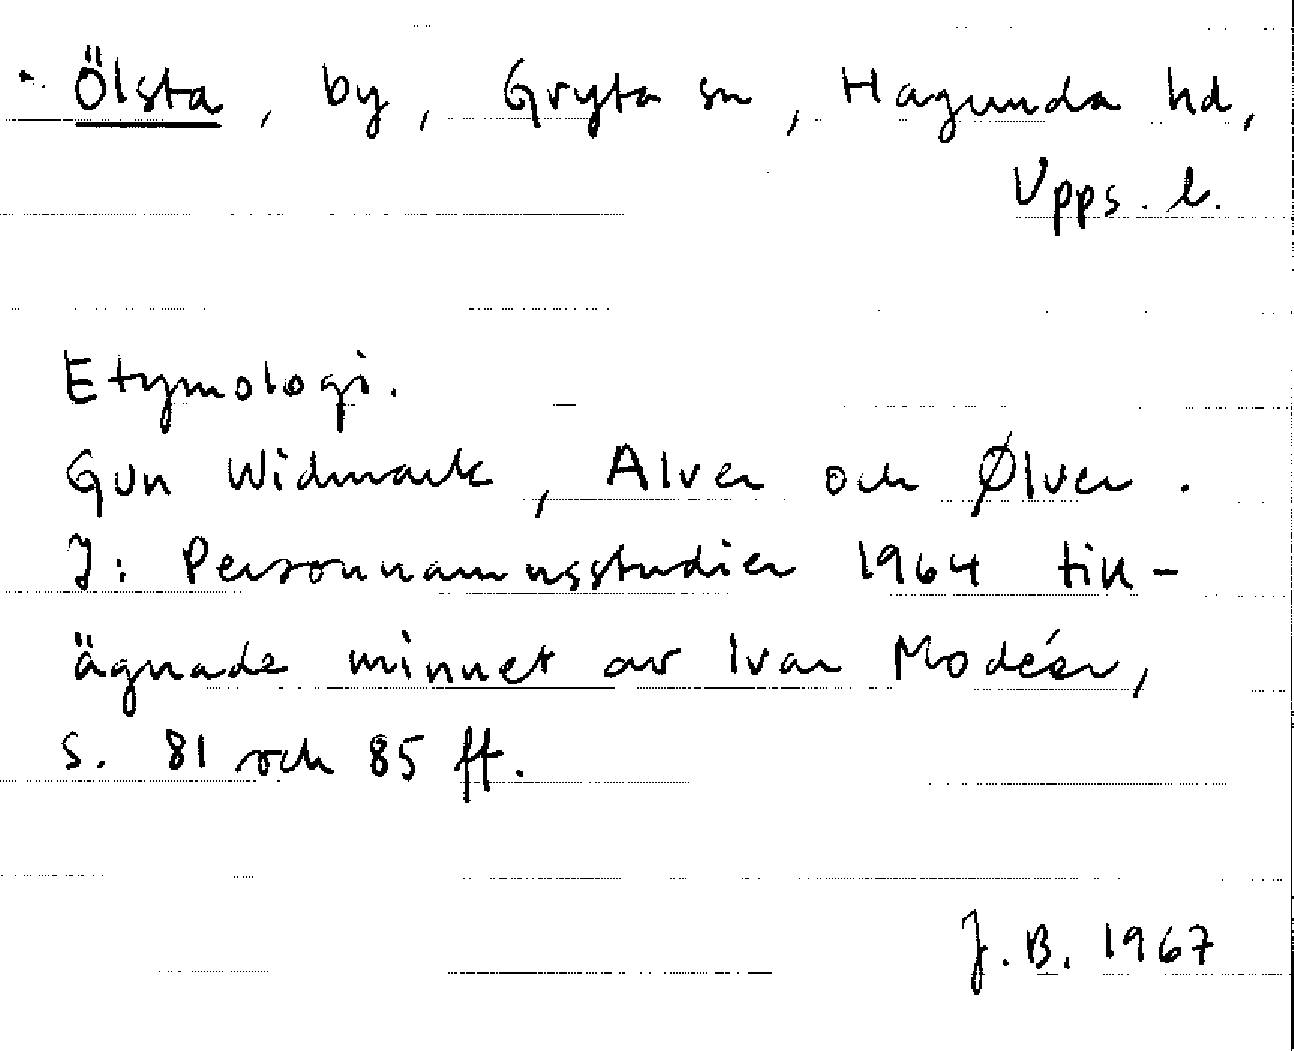 Ölsta, by, Gryta sn, Hagunda hd,
Upps. l.
Etymologi.
Gun Widmark, Alver och Ølver.
I: Personnamnsstudier 1964 till-
ägnade minnet av Ivar Modéer,
s. 81 och 85 ff.
J. B. 1967